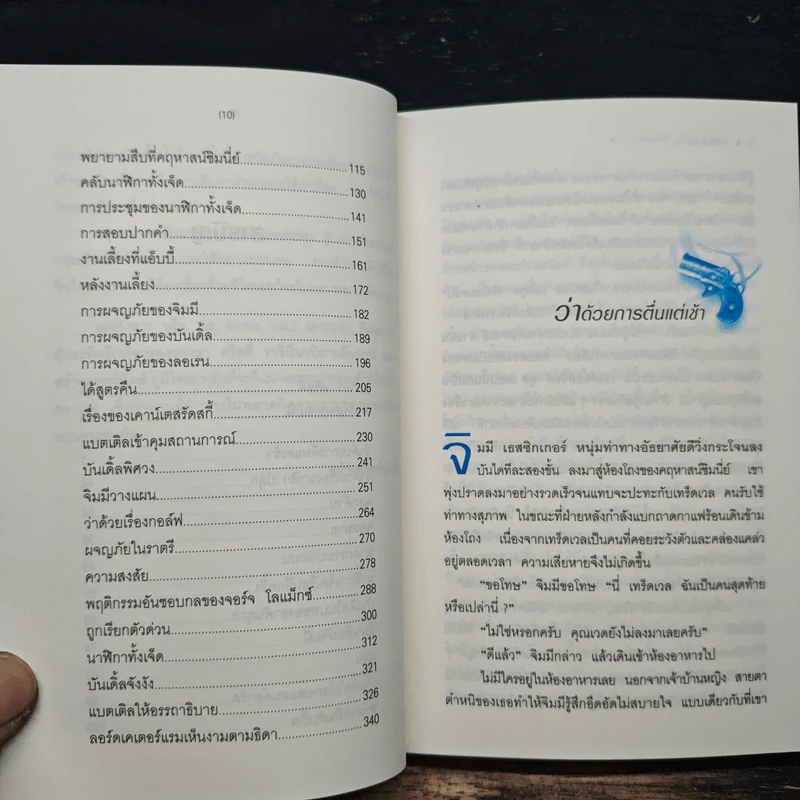 (10)
พยายามสืบที่คฤหาสน์ชิมนี่ย์..........................115
คลับนาฬิกาทั้งเจ็ด..........................130
การประชุมของนาฬิกาทั้งเจ็ด..........................141
การสอบปากคำ..........................151
งานเลี้ยงที่แอ็บบี้..........................161
หลังงานเลี้ยง..........................172
การผจญภัยของจิมมี..........................182
การผจญภัยของบันเดิ้ล..........................189
การผจญภัยของลอเรน..........................196
ได้สูตรคืน..........................205
เรื่องของเคาน์เตสรัดสกี้..........................217
แบตเติลเข้าคุมสถานการณ์..........................230
บันเดิ้ลพิศวง..........................241
จิมมีวางแผน..........................251
ว่าด้วยเรื่องกอล์ฟ..........................264
ผจญภัยในราตรี..........................270
ความสงสัย..........................278
พฤติกรรมอันชอบกลของจอร์จ โลแม็กซ์..........................288
ถูกเรียกตัวด่วน..........................300
นาฬิกาทั้งเจ็ด..........................312
บันเดิ้ลจังงัง..........................321
แบตเติลให้อรรถาธิบาย..........................326
ลอร์ดเคเตอร์แรมเห็นงามตามธิดา..........................340
ว่าด้วยการตื่นแต่เช้า
จิมมี เธสซิกเกอร์ หนุ่มท่าทางอัธยาศัยดีวิ่งกระโจนลง
บันไดทีละสองขั้น ลงมาสู่ห้องโถงของคฤหาสน์ชิมนี่ย์ เขา
พุ่งปราดลงมาอย่างรวดเร็วจนแทบจะปะทะกับเทร็ดเวล คนรับใช้
ท่าทางสุภาพ ในขณะที่ฝ่ายหลังกำลังแบกถาดกาแฟร้อนเดินข้าม
ห้องโถง เนื่องจากเทร็ดเวลเป็นคนที่คอยระวังตัวและคล่องแคล่ว
อยู่ตลอดเวลา ความเสียหายจึงไม่เกิดขึ้น
"ขอโทษ" จิมมีขอโทษ "นี่ เทร็ดเวล ฉันเป็นคนสุดท้าย
หรือเปล่านี่ ?"
"ไม่ใช่หรอกครับ คุณเวดยังไม่ลงมาเลยครับ"
"ดีแล้ว" จิมมีกล่าว แล้วเดินเข้าห้องอาหารไป
ไม่มีใครอยู่ในห้องอาหารเลย นอกจากเจ้าบ้านหญิง สายตา
ตำหนิของเธอทำให้จิมมีรู้สึกอึดอัดไม่สบายใจ แบบเดียวกับที่เขา